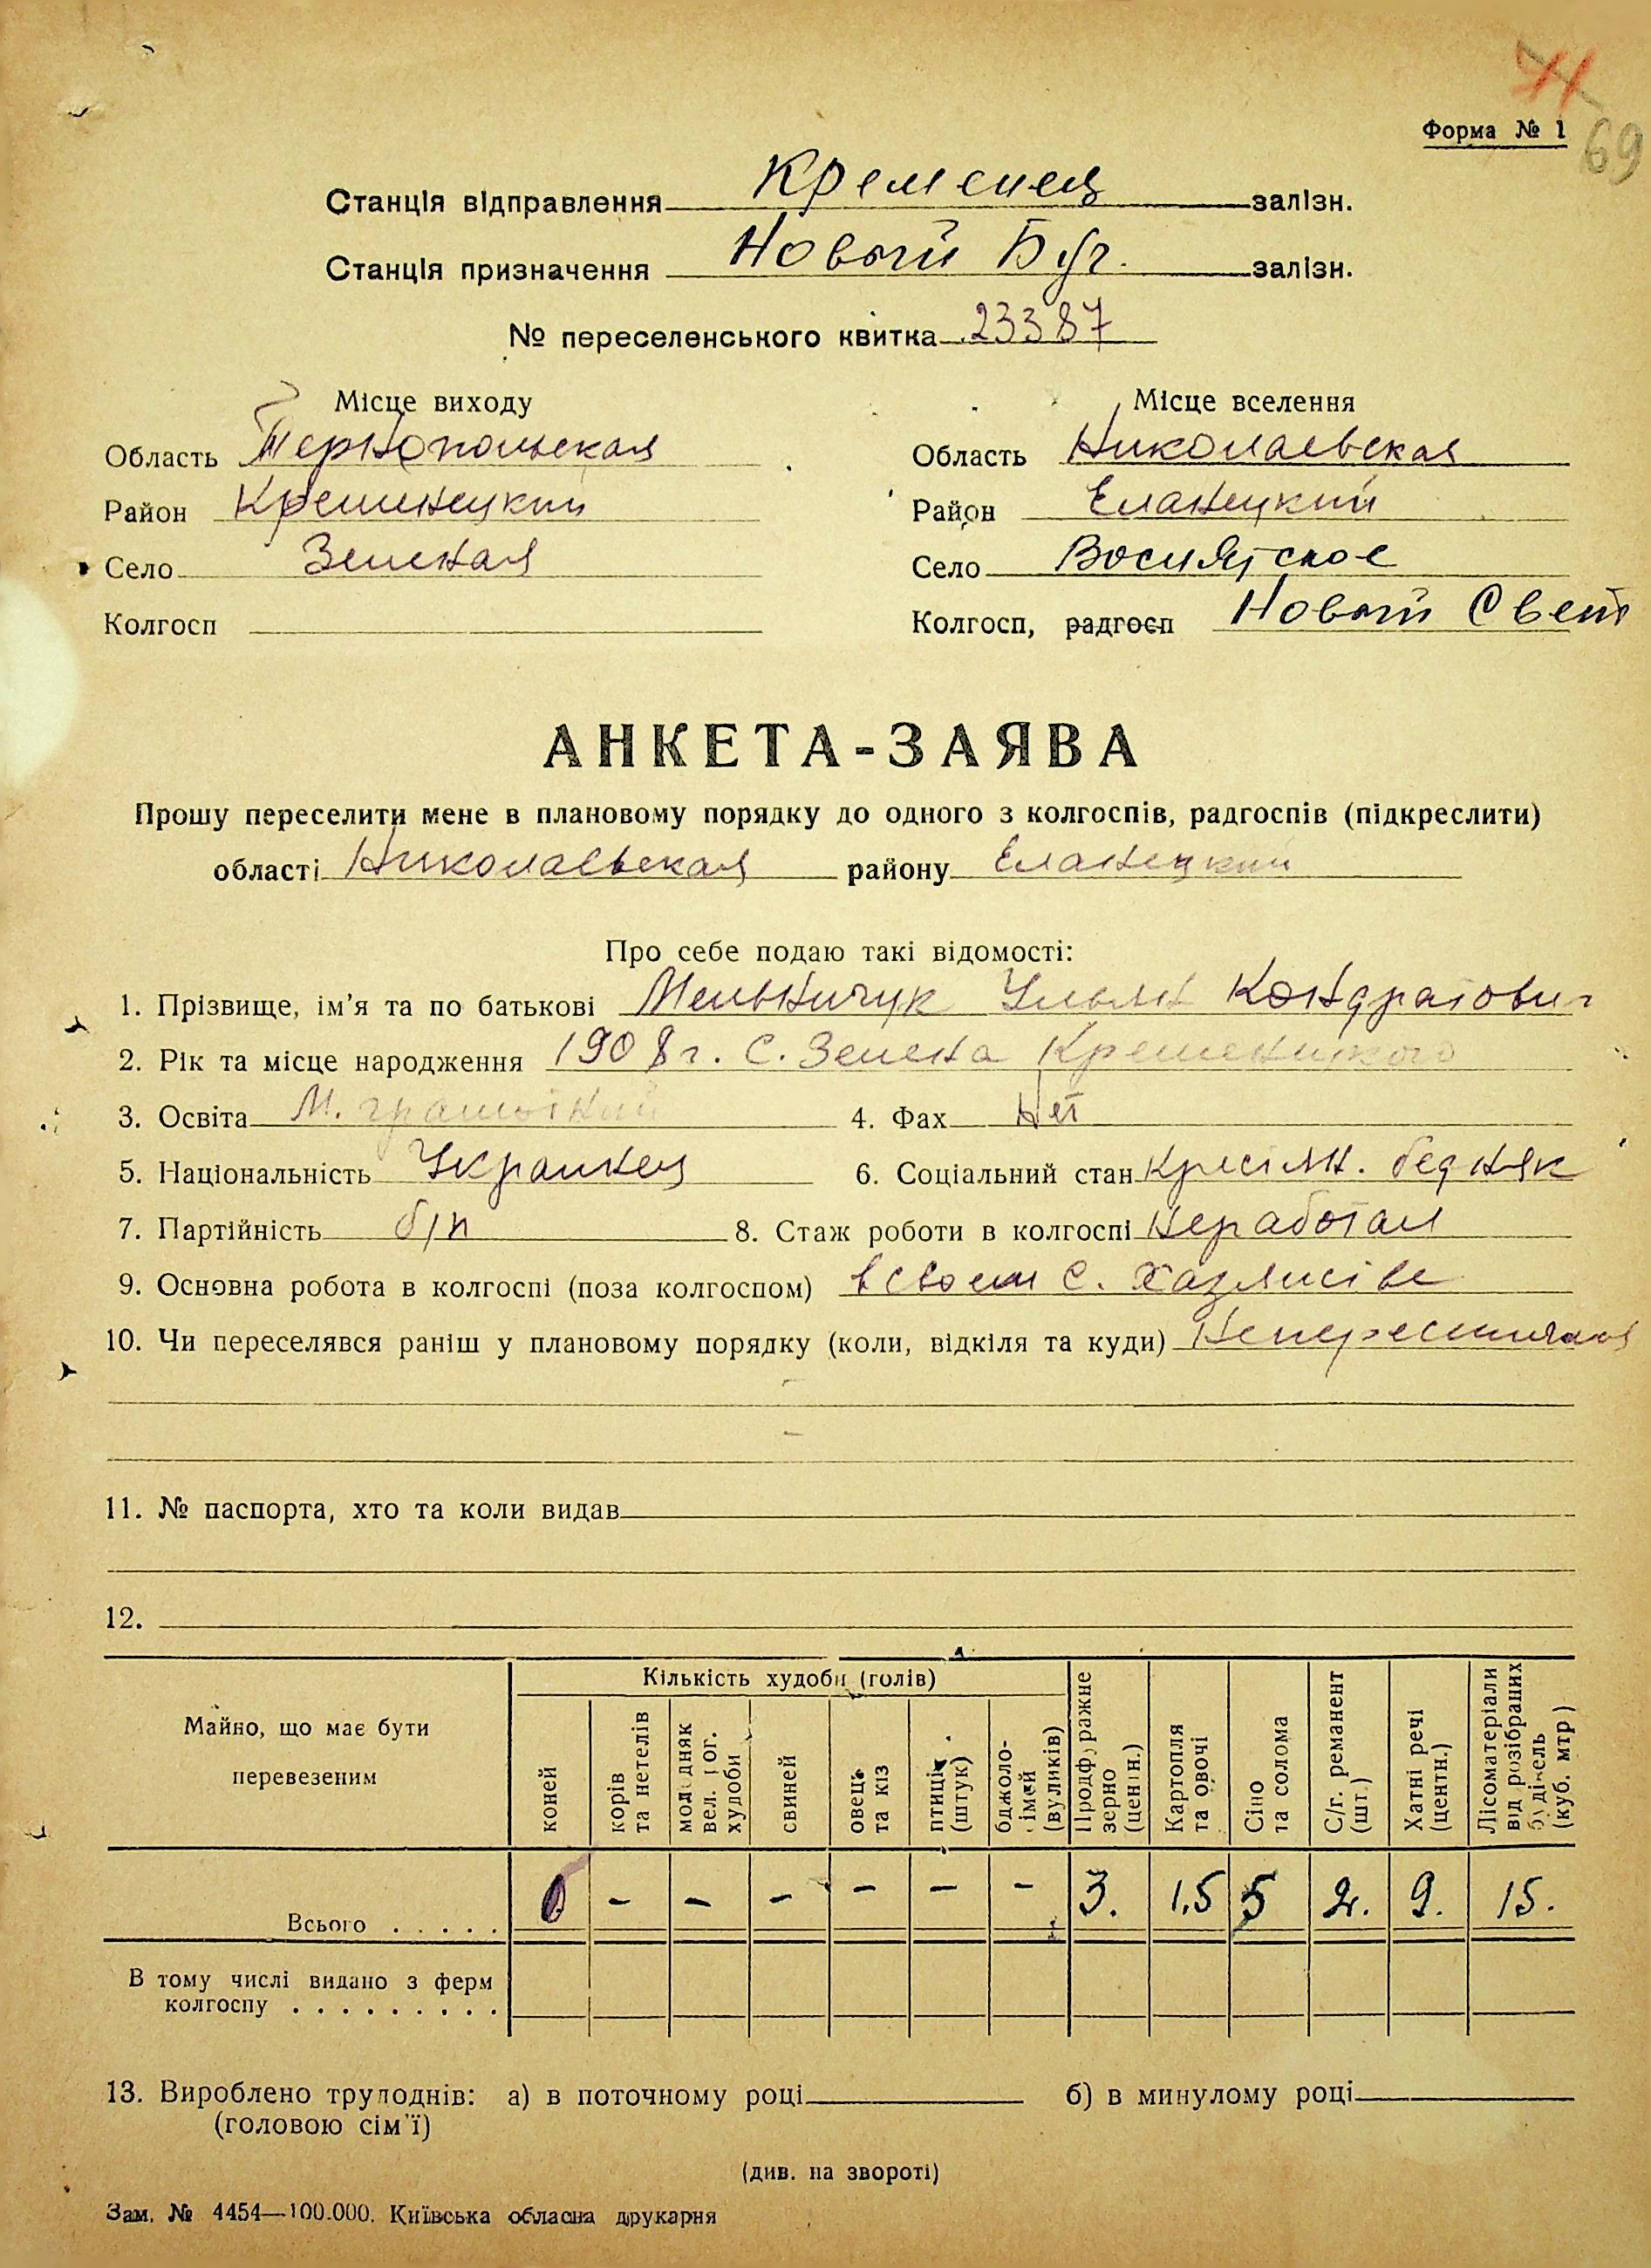 71
Форма № 1
69
Станція відправлення Кременец залізн.
Станція призначення Новый Буг. залізн.
№ переселенського квитка 23387
Місце виходу Місце вселення
Область Тернопольская Область Николаевская
Район Кременецкий Район Еланецкий
Село Зеленая Село Восиятское
Колгосп Колгосп, радгосп Новый Свет
АНКЕТА-ЗАЯВА
Прошу переселити мене в плановому порядку до одного з колгоспів, радгоспів (підкреслити)
області Николаевская району Еланецкий
Про себе подаю такі відомості:
1. Прізвище, ім'я та по батькові Мельничук Ульян Кондратович
2. Рік та місце народження 1908 г. С. Зелена Кременецкого
3. Освіта М. грамотний 4. Фах Нет
5. Національність Украинец 6. Соціальний стан Крестян. бедняк
7. Партійність б/п 8. Стаж роботи в колгоспі Неработал
9. Основна робота в колгоспі (поза колгоспом) в своем с. хазяистве
10. Чи переселявся раніш у плановому порядку (коли, відкіля та куди) Непереселялся
11. № паспорта, хто та коли видав
12.
Майно, що має бути перевезеним
Кількість худоби (голів)
коней
корів та нетелів
молодняк вел. рог. худоби
свиней
овець та кіз
птиці (штук)
бджоло-сімей (вуликів)
Продфуражне зерно (центн.)
Картопля та овочі
Сіно та солома
С/г. реманент (шт.)
Хатні речі (центн.)
Лісоматеріали від розібраних будівель (куб. мтр)
Всього . . . . . - - - - - - 3. 1,5 5 2. 9. 15.
В тому числі видано з ферм
колгоспу . . . . . . . . .
13. Вироблено трудоднів: а) в поточному році б) в минулому році
(головою сім'ї)
(див. на звороті)
Зам. № 4454—100.000. Київська обласна друкарня